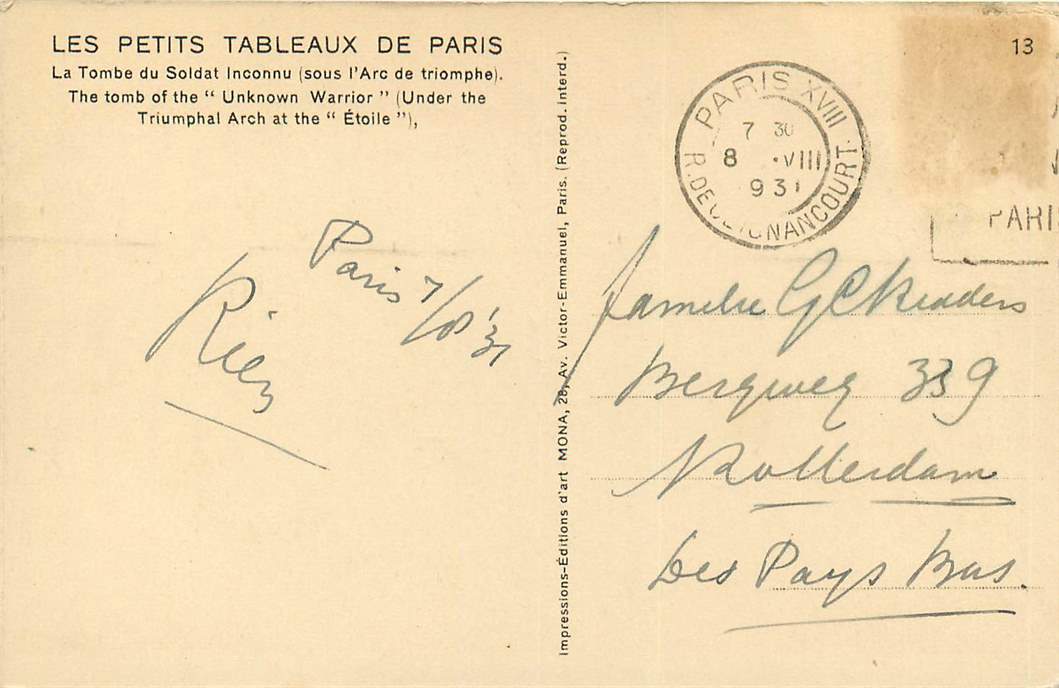 LES PETITS TABLEAUX DE PARIS
La Tombe du Soldat Inconnu (sous l'Arc de triomphe).
The tomb of the “ Unknown Warrior ” (Under the
Triumphal Arch at the “ Étoile ”),
Paris 7/8 '31
Rien
Impressions-Éditions d'art MONA, 28, Av. Victor-Emmanuel, Paris. (Reprod. interd.)
13
PARIS XVIII
7 30
8 VIII
931
R. DE CLIGNANCOURT
PARI
Familie G C
Bergweg 339
Rotterdam
Les Pays Bas.